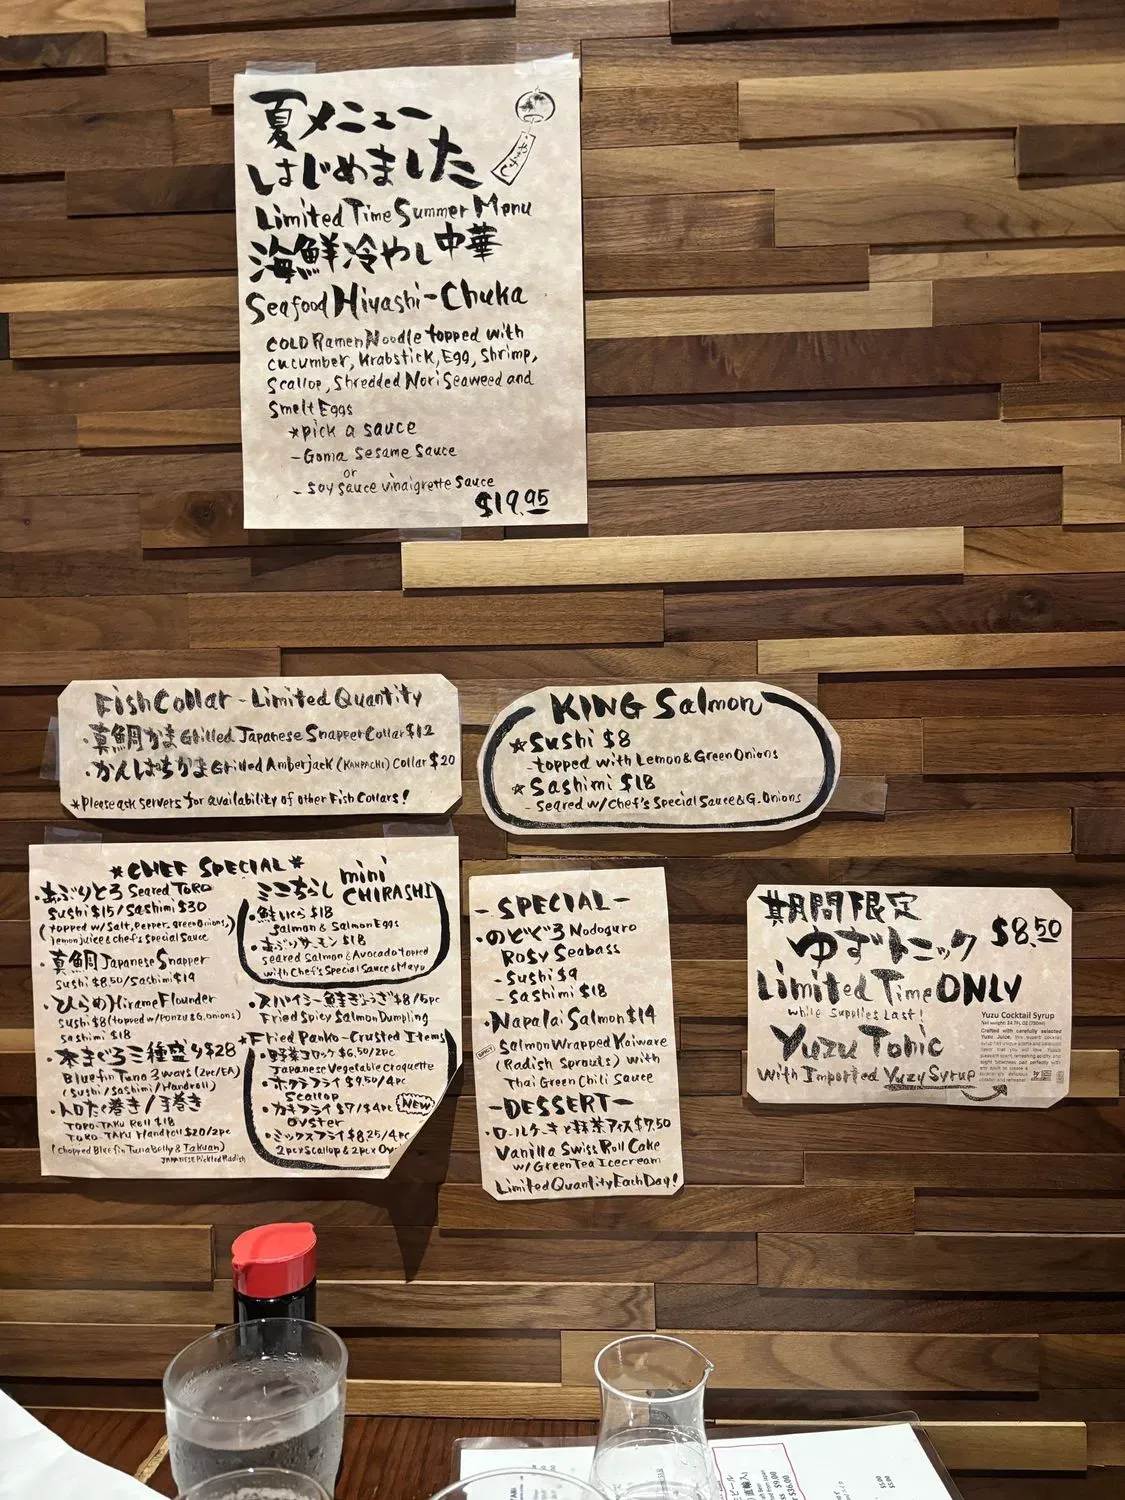 夏メニュー
はじめました
Limited Time Summer Menu
海鮮冷やし中華
Seafood Hiyashi-Chuka
COLD Ramen Noodle topped with
cucumber, Krabstick, Egg, Shrimp,
Scallop, Shredded Nori Seaweed and
Smelt Eggs
*pick a sauce
-Goma Sesame Sauce
or
-Soy Sauce vinaigrette Sauce
$19.95
Fish Collar - Limited Quantity
・真鯛かま Grilled Japanese Snapper Collar $12
・かんぱちかま Grilled Amberjack (KANPACHI) Collar $20
*Please ask servers for availability of other Fish Collars!
KING Salmon
☆Sushi $8
-topped with Lemon & Green Onions
☆Sashimi $18
-Seared w/Chef's Special Sauce & G.Onions
*CHEF SPECIAL*
・あぶりとろ Seared TORO
Sushi $15/Sashimi $30
(topped w/Salt, Pepper, green Onions,
lemon juice & chef's Special Sauce)
・真鯛 Japanese Snapper
Sushi $8.50/Sashimi $19
・ひらめ Hirame Flounder
Sushi $8 (topped w/PONZU & G.onions)
Sashimi $18
・本まぐろ三種盛り $28
Bluefin Tuna 3 ways (2pc/EA)
(Sushi/Sashimi/Handroll)
・トロたく巻き/手巻き
TORO-TAKU Roll $18
TORO-TAKU Handroll $20/2pc
(Chopped Bluefin Tuna Belly & Takuan)
JAPANESE Pickled Radish
ミニちらし mini CHIRASHI
・鮭いくら $18
Salmon & Salmon Eggs
・あぶりサーモン $18
Seared Salmon & Avocado topped
with Chef's Special Sauce & Mayo
・スパイシー鮭ぎょうざ $8/5pc
Fried Spicy Salmon Dumpling
*Fried Panko-Crusted Items
・野菜コロッケ $6.50/2pc
Japanese Vegetable Croquette
・ホタテフライ $9.50/4pc
Scallop
・カキフライ $7/$4pc NEW
Oyster
・ミックスフライ $8.25/4pc
2pc x Scallop & 2pc x Oy
-SPECIAL-
・のどぐろ Nodoguro
Rosy Seabass
-Sushi $9
-Sashimi $18
・Napalai Salmon $14
Salmon Wrapped Kaiware
(Radish Sprouts) with
Thai Green Chili Sauce
-DESSERT-
・ロールケーキと抹茶アイス $7.50
Vanilla Swiss Roll Cake
w/ Green Tea Icecream
Limited Quantity Each Day!
期間限定
ゆずトニック $8.50
Limited Time ONLY
while Supplies Last!
Yuzu Tonic
with Imported Yuzu Syrup
Yuzu Cocktail Syrup